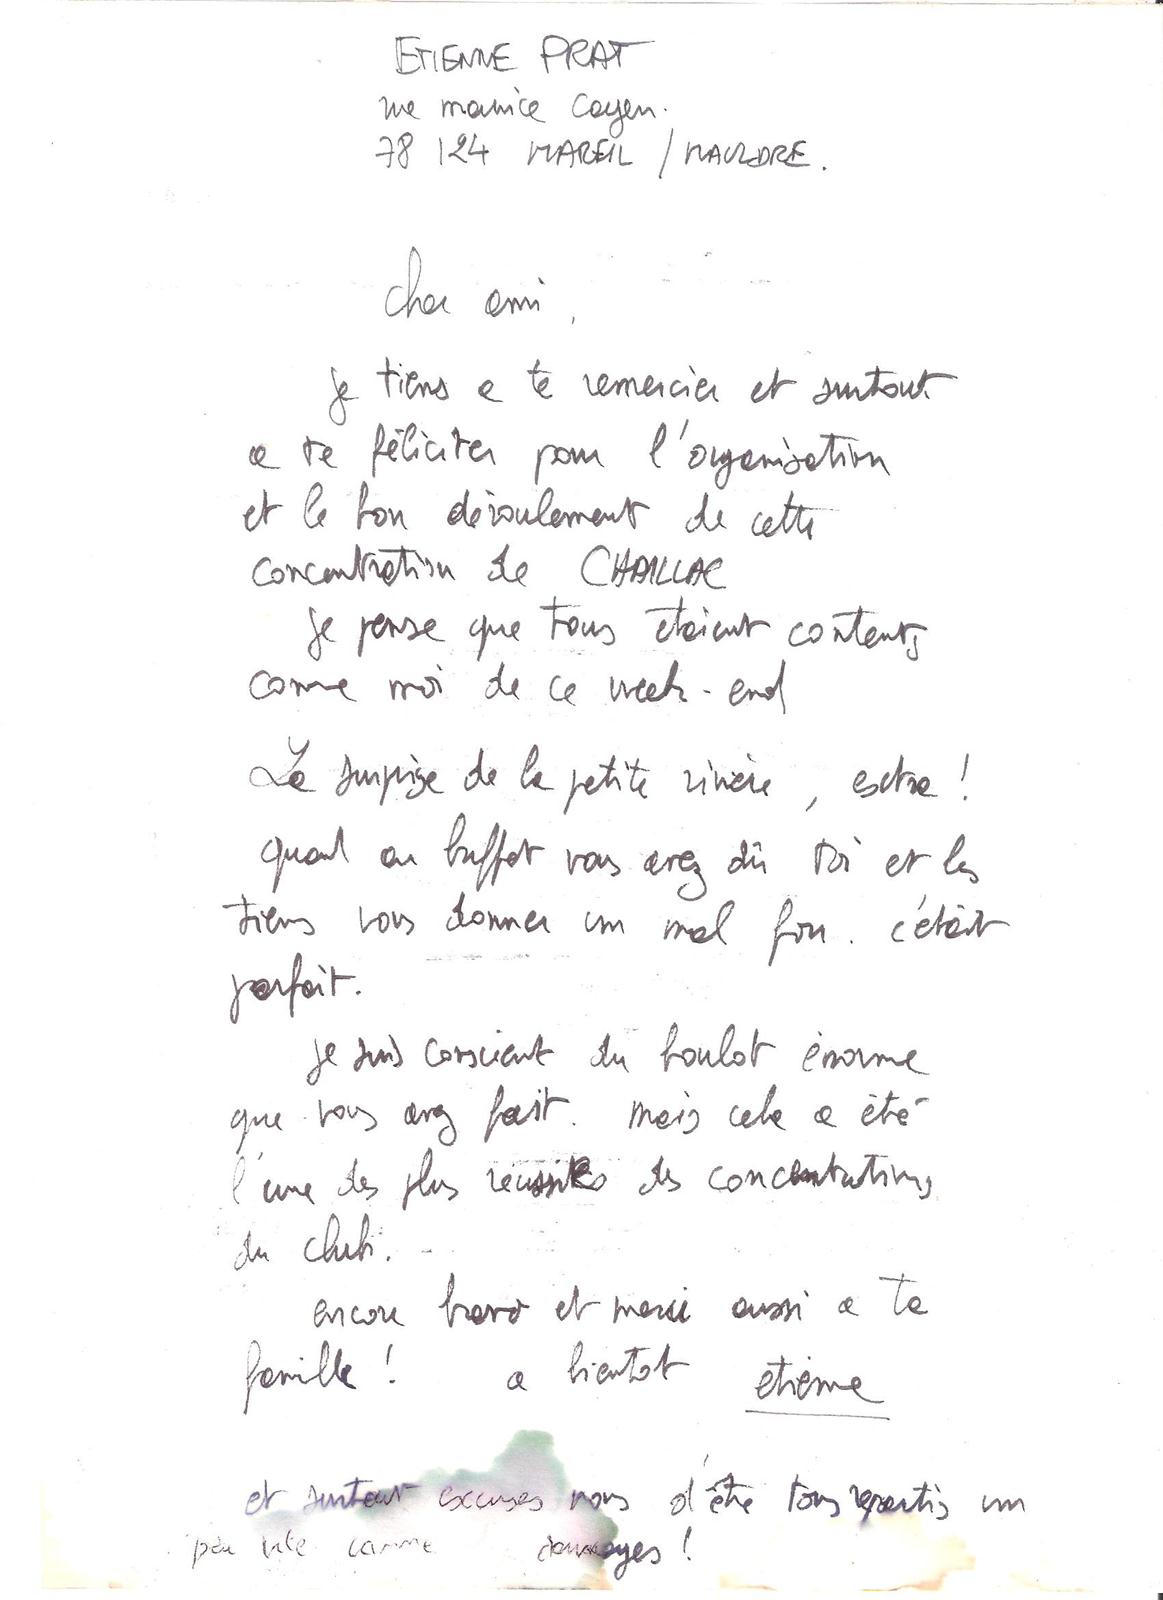 ETIENNE PRAT
rue maurice Cayen.
78 124 MAREIL / MAULDRE.
cher ami,
je tiens a te remercier et surtout
a te féliciter pour l'organisation
et le bon déroulement de cette
concentration de CHAILLAC
je pense que tous étaient contents
comme moi de ce week-end
La surprise de la petite rivière, extra !
quant au buffet vous avez dû toi et les
tiens vous donner un mal fou. c'était
parfait.
je suis conscient du boulot énorme
que vous avez fait. mais cela a été
l'une des plus réussites des concentrations
du club.
encore bravo et merci aussi a ta
famille ! a bientot etienne
et surtout excuses nous d'être tous repartis un
peu vite comme !